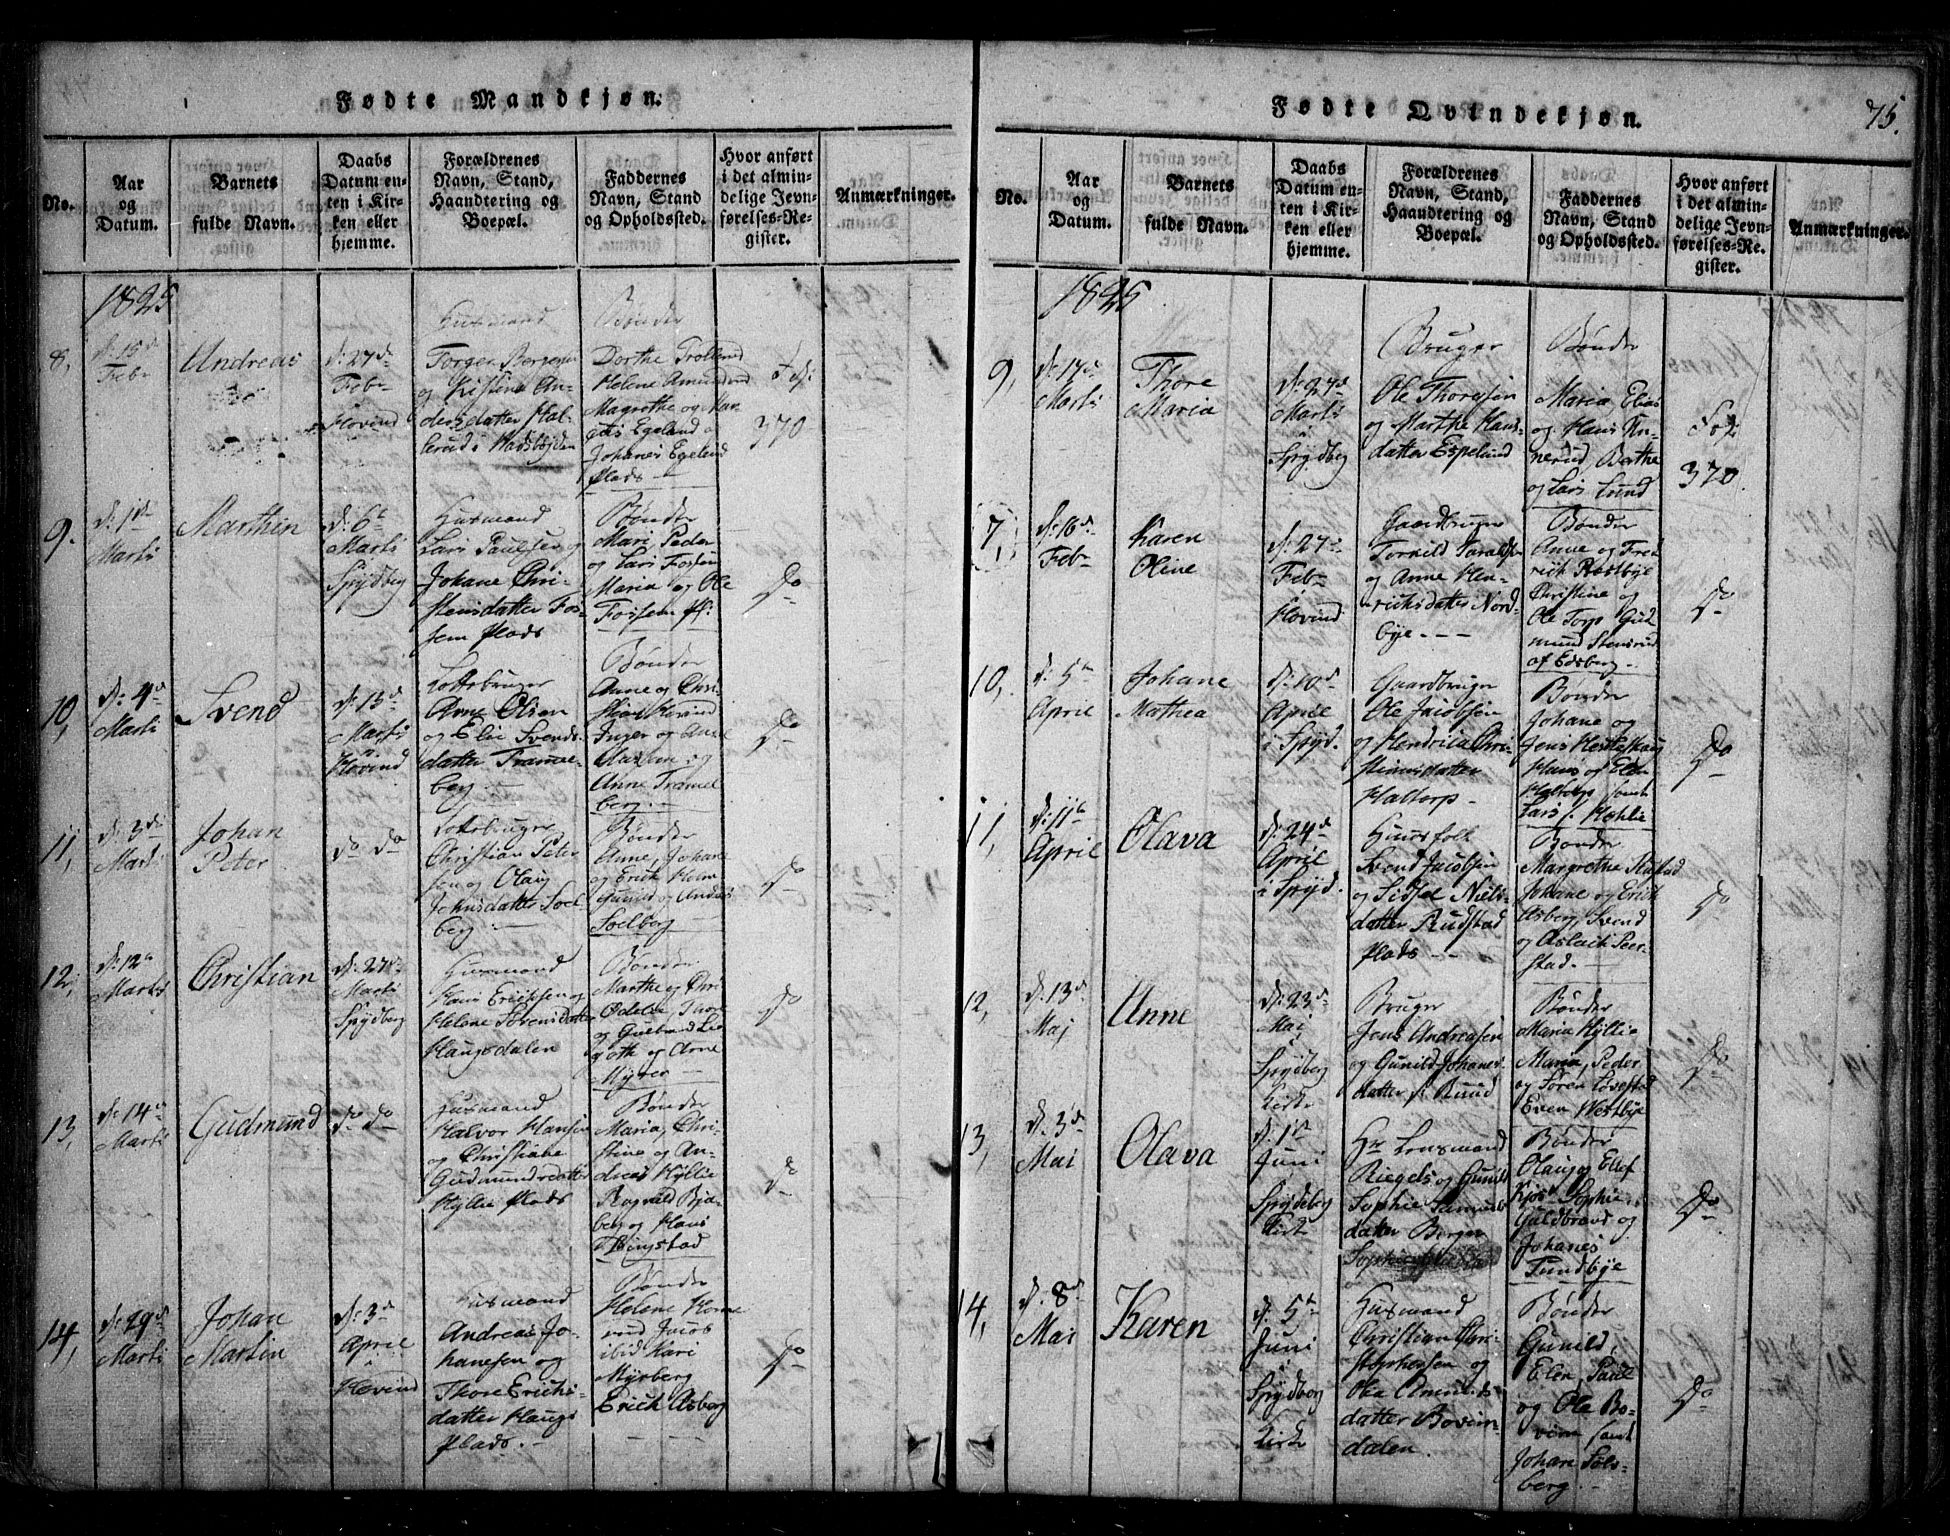 Fødte Mandkjøn.
No.
Aar
og
Datum.
Barnets
fulde Navn.
Daabs
Datum en-
ten i Kir-
ken eller
hjemme.
Forældrenes
Navn, Stand,
Haandtering og
Boepæl.
Faddernes
Navn, Stand
og Opholdssted.
Hvor anført
i det almin-
delige Jevn-
førelses-Re-
gister.
Anmærkninger.
1825
8,
d: 15d
Febr
Andreas
d: 27d
Febr
Hovind
Huusmand
Torger
og Kristine An-
dersdatter
Bønder
Dorthe
Helene Amundrud
Magrethe og
Egelund
Johanes Egelund
Plads
Fol:
370
9.
d: 1d
Marti
Marthin
d: 6t
Marti
Spydberg
Huusmand
Lars Paulsen og
Johane Chri-
stensdatter Fos-
sem Plads
Bønder
Mari Peder
og Lars Fossem
Maria og Ole
Fossem Pl:
do
10,
d: 4d
Marti
Svend
d: 13d
Marti
Hovind
Arne Olsen
og Eli Svends-
datter Tramel-
berg
Bønder
Anne og Chri-
stian Hovind
Inger og
og
Anne Tramel
berg
do
11,
d: 3d
Marti
Johan
Peter
do do
Christian Peter
sen og Olaug
Johnsdatter Soel-
berg
Bønder
Anne, Johane
og Erich
Gunild og Anders
Soelberg
do
12,
d: 12t
Marti
Christian
d: 27d
Marti
Spydberg
Huusmand
Hans Erichsen og
Helene Svensdatter
Haugsdalen
Bønder
Marthe og Chri-
og Gulbrand
og Arne
Myrer
do
13,
d: 14d
Marti
Gudmund
do do
Huusmand
Halvor Hansen
og Christiane
Gudmundsdatter
Hyllie Plads
Bønder
Maria, Chri-
stine og An-
dreas Hyllie
berg og Hans
Thingstad
do
14,
d: 29d
Marti
Johan
Martin
d: 3d
April
Hovind
Huusmand
Andreas Jo-
hanesen og
Thore Erichs-
datter Haugs
Plads
Bønder
Helene
Jacob
ibid Kari
Myrberg
Erich Asberg
do
Fødte Qvindekjøn.
75.
No.
Aar
og
Datum.
Barnets
fulde Navn.
Daabs
Datum en-
ten i Kir-
ken eller
hjemme.
Forældrenes
Navn, Stand,
Haandtering og
Boepæl.
Faddernes
Navn, Stand
og Opholdssted.
Hvor anført
i det almin-
delige Jevn-
førelses-Re-
gister.
Anmærkninger.
1825
9,
d: 17d
Marti
Thore
Maria
d: 27d
Marti
i
Spydberg
Bruger
Ole Thoresen
og Marthe Hans-
datter Espelund
Bønder
Maria Elias
og Hans
nerud, Berthe
og Lars Lund
Fol:
370
7,
d: 16d
Febr
Karen
Oline
d: 27d
Febr
Hovind
Gaardbruger
Tarald
og Anne Hen-
richsdatter Nord-
bye
Bønder
Anne og Fred
rich Rostbye
Christine og
Ole Torp Gud
mund Stensrud
af Edsberg
do
10,
d: 5t
April
Johane
Mathea
d: 10d
April
i Spyd.
Gaardbruger
Ole Jacobsen
og Hendricka Chri-
stiansdatter
Haltorp
Bønder
Johane og
Jens
Hans og Elen
Haltorp samt
Lars
do
11,
d: 11t
April
Olava
d: 24d
April
i Spyd.
Huusfolk
Svend Jacobsen
og Sidsel Niels-
datter Rudstad
Plads
Bønder
Margrethe
Johane og Erich
Asberg, Svend
og Aslach Peer-
stad
do
12,
d: 13d
Maj
Anne
d: 23d
Maj
Spydberg
Kirke
Bruger
Jens Andreasen
og Gunild Johanes-
datter Ruud
Bønder
Maria Hyllie
Maria, Peder
og Søren Løvestad
Even Westbye
do
13,
d: 3d
Mai
Olava
d: 1st
Juni
Spydeberg
Kirke
Hr Lensmand
Riegels og Gunild
Sophie Samuels
datter Berger
Bønder
Olaug og Ellef
Kjos Sophie
Guldbrand og
Johanes
Tundbye
do
14,
d: 8d
Mai
Karen
d: 5t
Juni
Spydberg
Kirke
Huusmand
Christian Chri-
stophersen og
Olea Amunds
datter Bovim-
dalen.
Bønder
Gunild,
Elen, Paul
og Ole Bo-
vim samt
Johan Sols-
berg
do